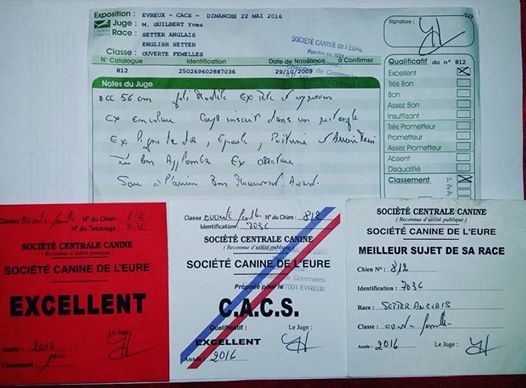 Exposition : EVREUX - CACS - DIMANCHE 22 MAI 2016
Juge : M. GUILBERT Yves
Race : SETTER ANGLAIS
ENGLISH SETTER
Classe : OUVERTE FEMELLES
SOCIÉTÉ CANINE DE L'EURE
Signature :
N° Catalogue Identification Date de Naissance à Confirmer
812 250269602887036 29/10/2009
Qualificatif du n° 812
Excellent
Très Bon
Bon
Assez Bon
Insuffisant
Très Prometteur
Prometteur
Assez Prometteur
Absent
Disqualifié
Classement
Notes du Juge
56 cm joli Modèle Ex Tête
Ex encolure Corps inscrit dans un rectangle
Ex Ligne de dos, Epaule, Poitrine
Très Bon Aplombs Ex
Bon Mouvement
Classe N° du Chien : 812
N° de Tatouage : 7036
SOCIÉTÉ CENTRALE CANINE
(Reconnue d'utilité publique)
SOCIÉTÉ CANINE DE L'EURE
EXCELLENT
Année : 2016 Le Juge :
Classement :
Classe N° du Chien : 812
Identification : 7036
SOCIÉTÉ CENTRALE CANINE
(Reconnue d'utilité publique)
SOCIÉTÉ CANINE DE L'EURE
Proposé pour le
C.A.C.S.
Qualificatif :
EXCELLENT
Le Juge :
Année : 2016
SOCIÉTÉ CENTRALE CANINE
(Reconnue d'utilité publique)
SOCIÉTÉ CANINE DE L'EURE
MEILLEUR SUJET DE SA RACE
Chien N° : 812
Identification : 7036
Race : SETTER ANGLAIS
Classe :
Année : 2016 Le Juge :